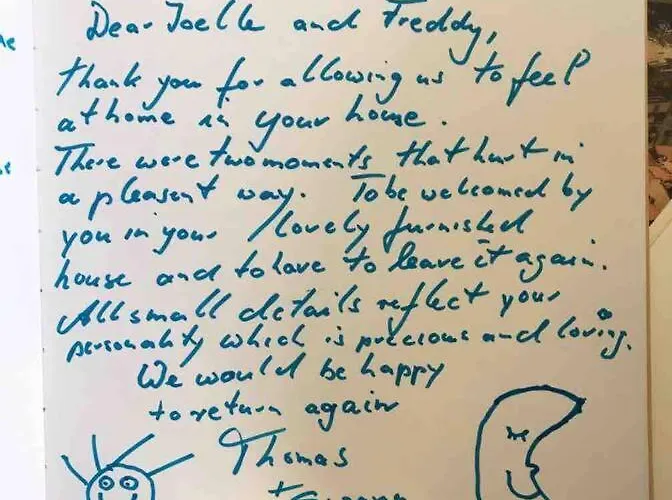 Dear Joelle and Freddy,
thank you for allowing us to feel
at home in your house.
There were two moments that hurt in
a pleasent way. To be welcomed by
you in your lovely furnished
house and to have to leave it again.
All small details reflect your
personality which is precious and loving.
We would be happy
to return again
Thomas
+